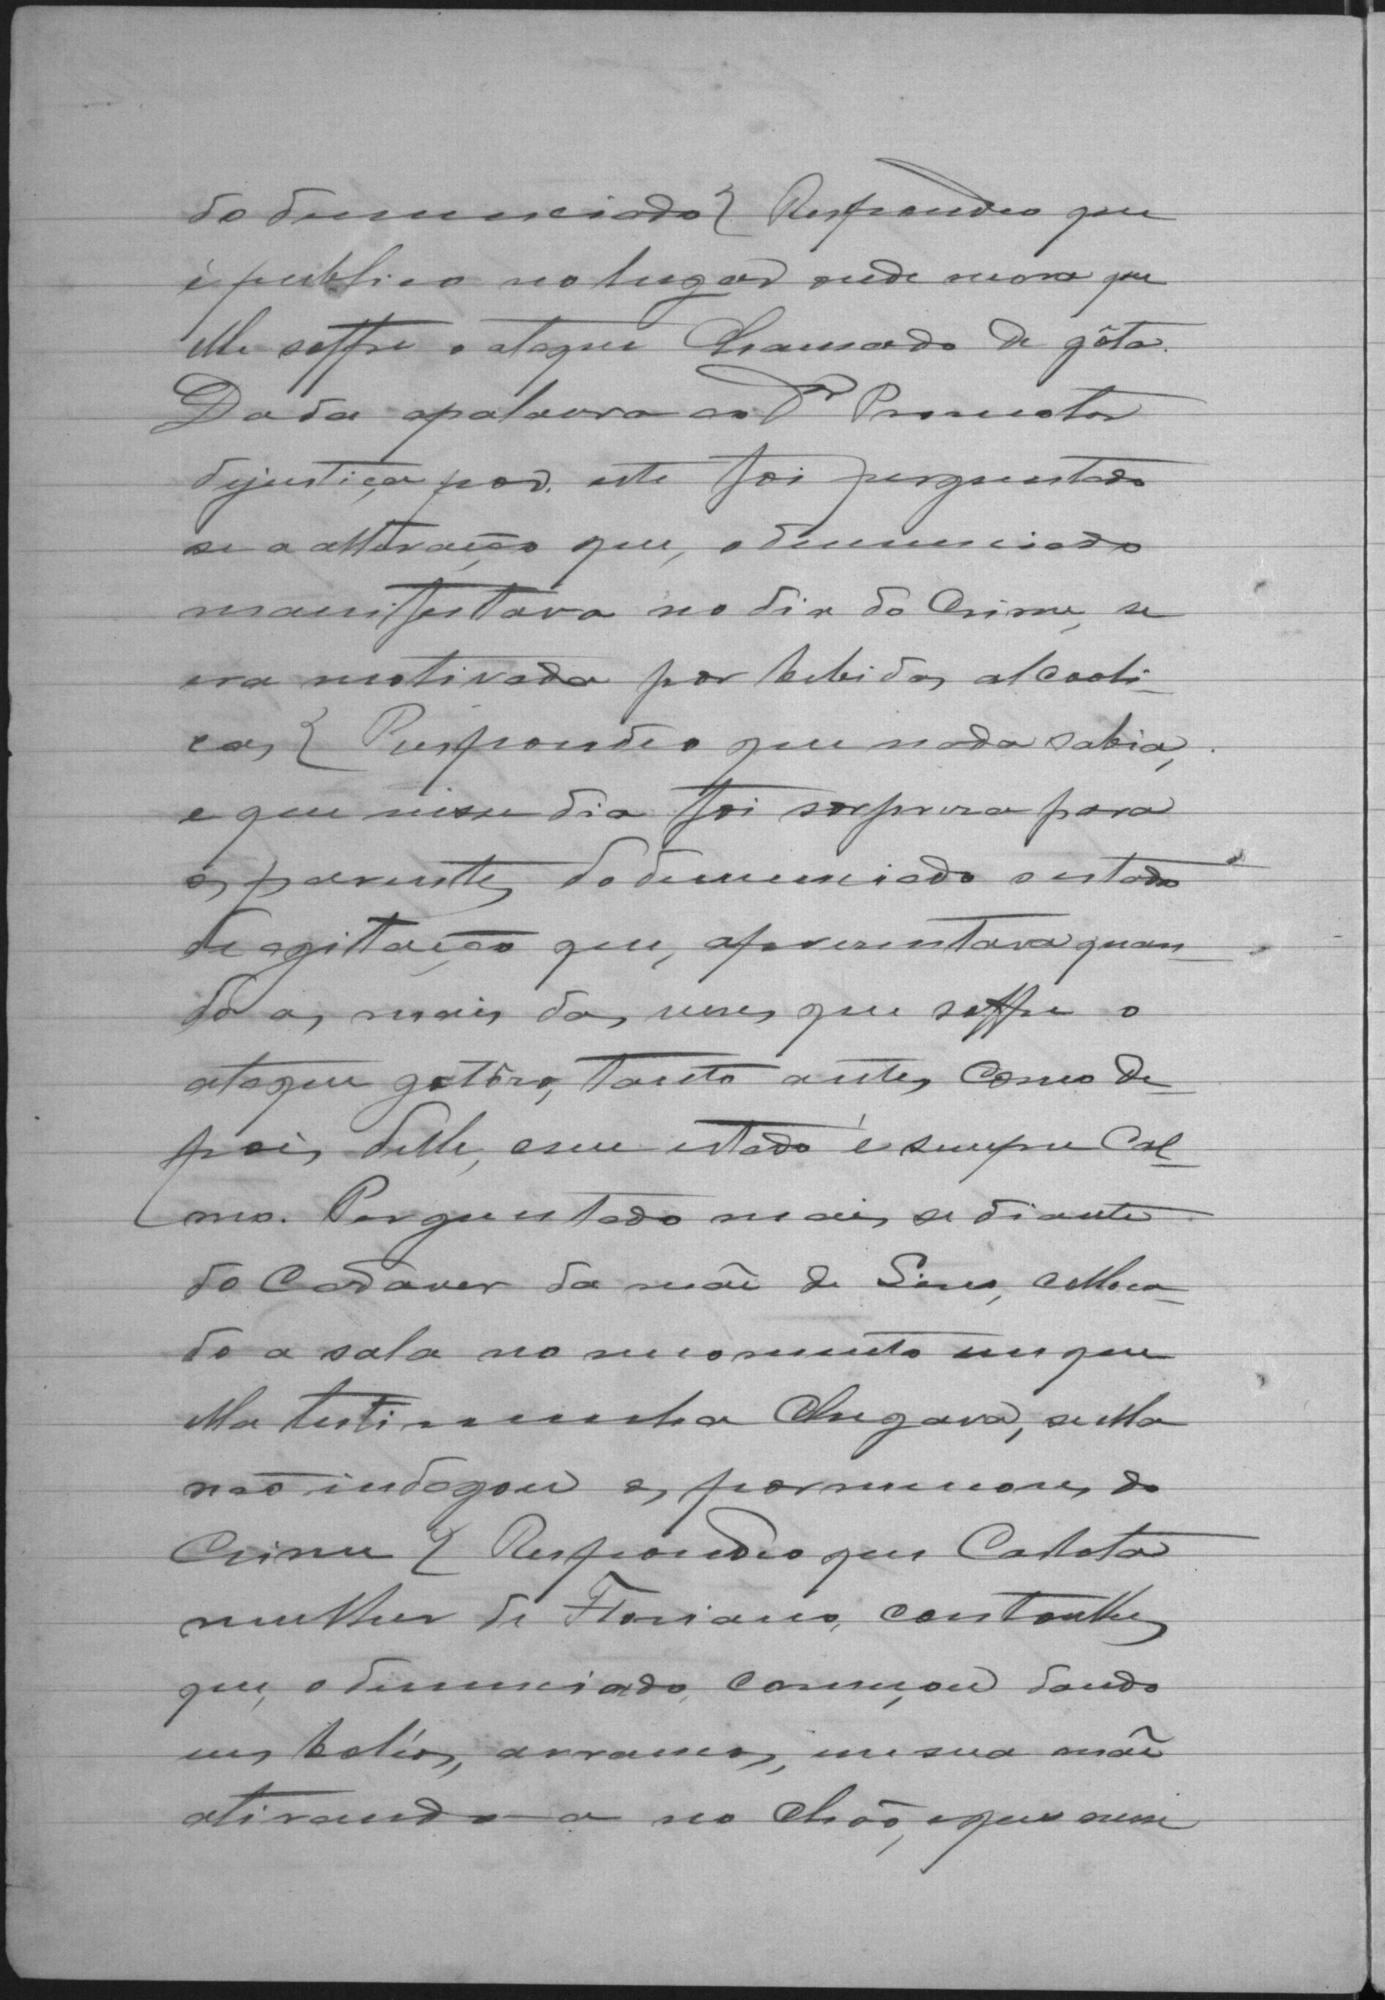 do denunciado } Respondeo que
é publico no lugar onde mora que
elle soffre o ataque Chamado de gôta.
Dada apalavra ao Dr Promotor
dejustiça por. este foi perguntado
se a alteração que, o denunciado
manifestava no dia do Crime, se
era motivada por bebidas alcooli-
cas } Respondeo que nada sabia,
e que nesse dia foi sorpresa para
os parentes do denunciado o estado
de agitação que, apresentava quan-
do as mais das vezes que soffre o
ataque gotôso, tanto antes Como de-
pois delle, esse estado é sempre Cal-
mo. Perguntado mais se diante
do Cadaver da mãe de Lino, colloca-
do a sala no momento em que
ella testimunha Chegava, se ella
não indagou os pormenores do
Crime } Respondeo que Carlota
mulher de Floriano, contoulhe
que, o denunciado, começou dando
uns boléos, arrancos, em sua mãe
atirando-a no Chão, e que nesse